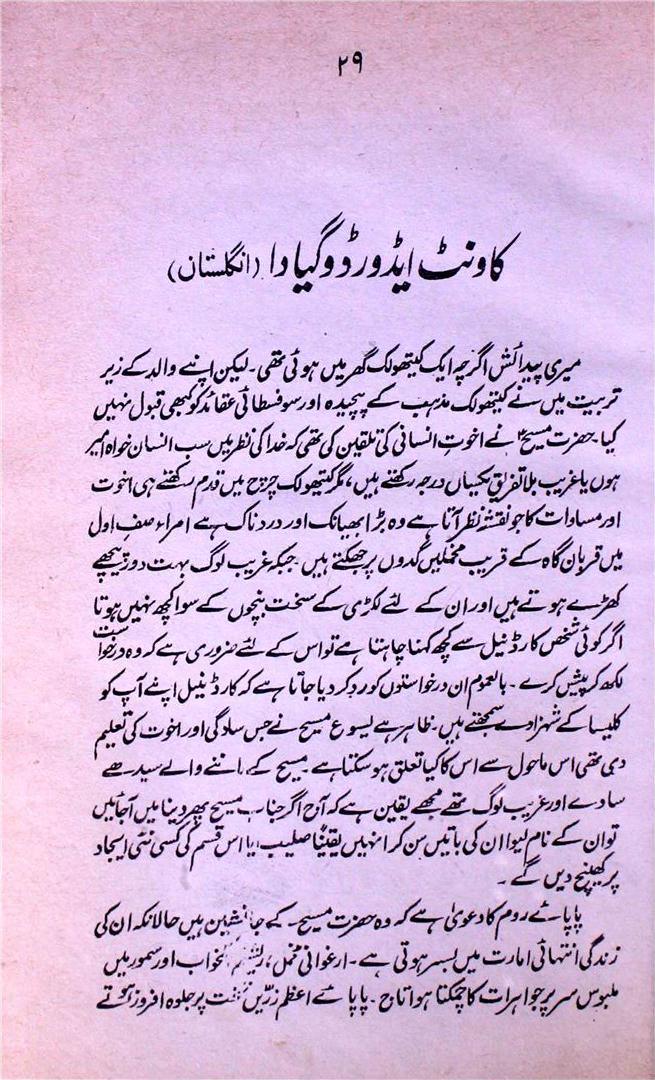 ۲۹
کاونٹ ایڈورڈ و گیادا (انگلستان)
میری پیدائش اگرچہ ایک کیتھولک گھر میں ہوئی تھی۔ لیکن اپنے والد کے زیر
تربیت میں نے کیتھولک مذہب کے پیچیدہ اور سوفسطائی عقائد کو کبھی قبول نہیں
کیا۔ حضرت مسیحؑ نے اخوتِ انسانی کی تلقین کی تھی کہ خدا کی نظر میں سب انسان خواہ امیر
ہوں یا غریب بلا تفریق یکساں درجہ رکھتے ہیں، مگر کیتھولک چرچ میں قدم رکھتے ہی اخوت
اور مساوات کا جو نقشہ نظر آتا ہے وہ بڑا بھیانک اور دردناک ہے امراء صفِ اول
میں قربان گاہ کے قریب مخملیں گدوں پر جھکتے ہیں۔ جبکہ غریب لوگ بہت دور پیچھے
کھڑے ہوتے ہیں اور ان کے لئے لکڑی کے سخت بنچوں کے سوا کچھ نہیں ہوتا
اگر کوئی شخص کارڈنیل سے کچھ کہنا چاہتا ہے تو اس کے لئے ضروری ہے کہ وہ درخواست
لکھ کر پیش کرے۔ بالعموم ان درخواستوں کو رد کر دیا جاتا ہے کہ کارڈنیل اپنے آپ کو
کلیسا کے شہزادے سمجھتے ہیں۔ ظاہر ہے یسوع مسیح نے جس سادگی اور اخوت کی تعلیم
دی تھی اس ماحول سے اس کا کیا تعلق ہو سکتا ہے۔ مسیح کے ماننے والے سیدھے
سادے اور غریب لوگ تھے مجھے یقین ہے کہ آج اگر جناب مسیح پھر دنیا میں آ جائیں
تو ان کے نام لیوا ان کی باتیں سن کر انہیں یقیناً صلیب یا اس قسم کی کسی نئی ایجاد
پر کھینچ دیں گے۔
پاپائے روم کا دعویٰ ہے کہ وہ حضرت مسیح کے جانشین ہیں حالانکہ ان کی
زندگی انتہائی امارت میں بسر ہوتی ہے۔ ارغوانی مخمل، ریشم، کمخواب اور سمور میں
ملبوس سر پر جواہرات کا چمکتا ہوا تاج۔ پاپائے اعظم زرّیں تخت پر جلوہ افروز ہوتے